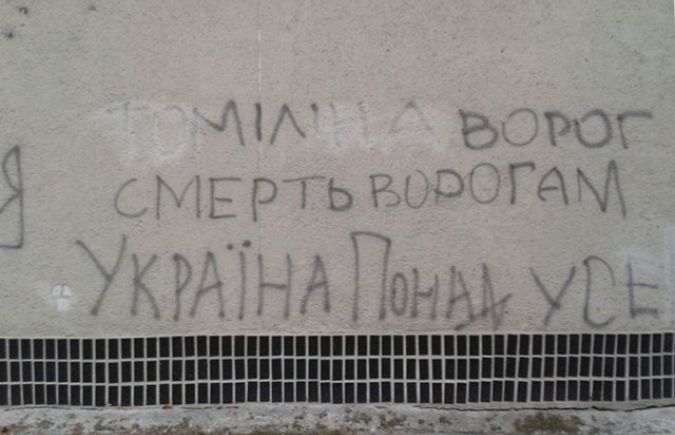 ТОМІЛІНА ВОРОГ
СМЕРТЬ ВОРОГАМ
УКРАЇНА ПОНАД УСЕ
Я